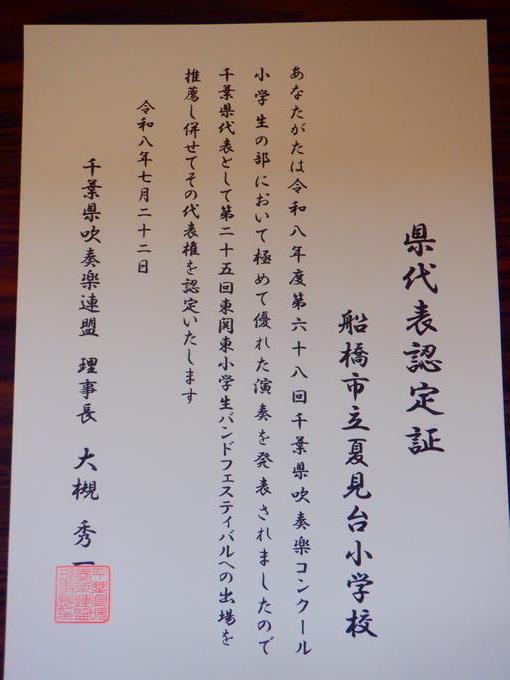 県代表認定証
船橋市立夏見台小学校
あなたがたは令和八年度第六十八回千葉県吹奏楽コンクール
小学生の部において極めて優れた演奏を発表されましたので
千葉県代表として第二十五回東関東小学生バンドフェスティバルへの出場を
推薦し併せてその代表権を認定いたします
令和八年七月二十二日
千葉県吹奏楽連盟 理事長 大槻 秀一